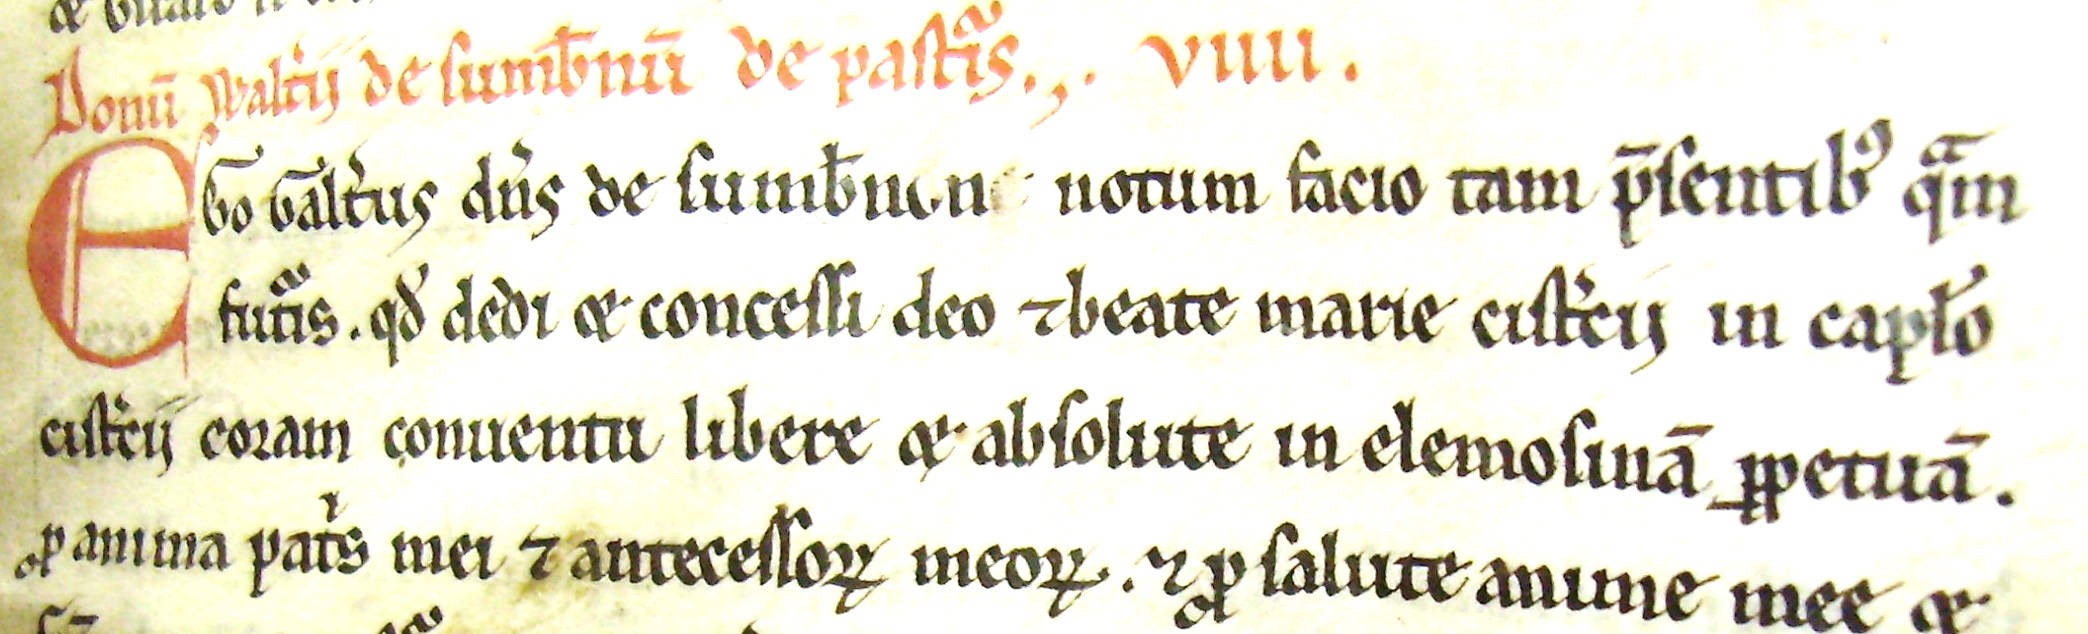 Donū Walt'ii de sumb̄nū de pastis. , . viiii .
Ego Gālt'us dn̄s de sumb̄nun notum facio tam p̄sentib' qam
futis . qd' dedi & concessi deo ⁊ beate marie cist'cii in capl'o
cist'cii coram conuentu libere & absolute in elemosinā ꝑpetuā .
ꝓ anima patis mei ⁊ antecessoꝝ meoꝝ . ⁊ ꝓ salute anime mee &